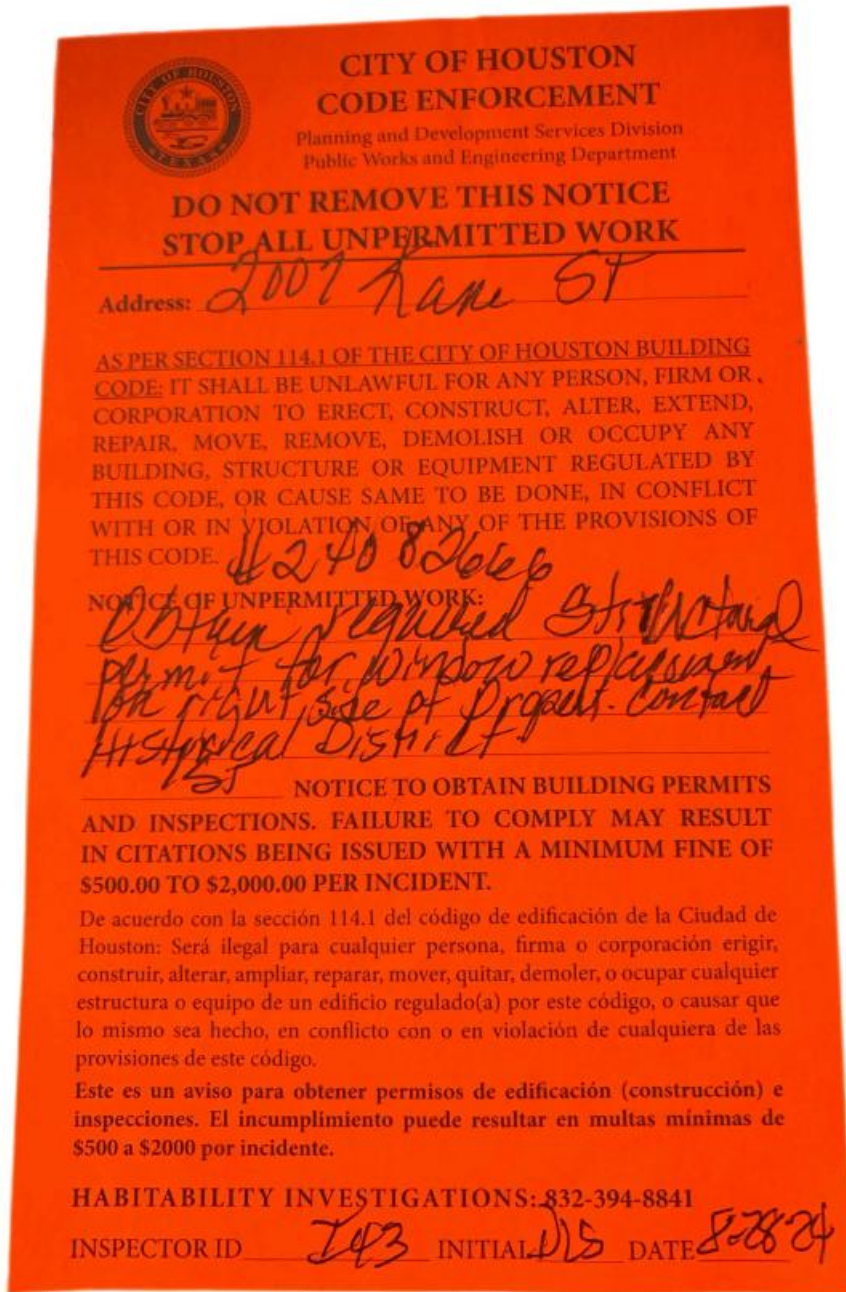 CITY OF HOUSTON
TEXAS
CITY OF HOUSTON
CODE ENFORCEMENT
Planning and Development Services Division
Public Works and Engineering Department
DO NOT REMOVE THIS NOTICE
STOP ALL UNPERMITTED WORK
Address: 2007 Kane ST
AS PER SECTION 114.1 OF THE CITY OF HOUSTON BUILDING
CODE: IT SHALL BE UNLAWFUL FOR ANY PERSON, FIRM OR
CORPORATION TO ERECT, CONSTRUCT, ALTER, EXTEND,
REPAIR, MOVE, REMOVE, DEMOLISH OR OCCUPY ANY
BUILDING, STRUCTURE OR EQUIPMENT REGULATED BY
THIS CODE, OR CAUSE SAME TO BE DONE, IN CONFLICT
WITH OR IN VIOLATION OF ANY OF THE PROVISIONS OF
THIS CODE. #24082666
NOTICE OF UNPERMITTED WORK:
Obtain required structural
permit for window replacement
on right side of Contact
Historical District.
NOTICE TO OBTAIN BUILDING PERMITS
AND INSPECTIONS. FAILURE TO COMPLY MAY RESULT
IN CITATIONS BEING ISSUED WITH A MINIMUM FINE OF
$500.00 TO $2,000.00 PER INCIDENT.
De acuerdo con la sección 114.1 del código de edificación de la Ciudad de
Houston: Será ilegal para cualquier persona, firma o corporación erigir,
construir, alterar, ampliar, reparar, mover, quitar, demoler, o ocupar cualquier
estructura o equipo de un edificio regulado(a) por este código, o causar que
lo mismo sea hecho, en conflicto con o en violación de cualquiera de las
provisiones de este código.
Este es un aviso para obtener permisos de edificación (construcción) e
inspecciones. El incumplimiento puede resultar en multas mínimas de
$500 a $2000 por incidente.
HABITABILITY INVESTIGATIONS: 832-394-8841
INSPECTOR ID I43 INITIAL DATE 8-28-24